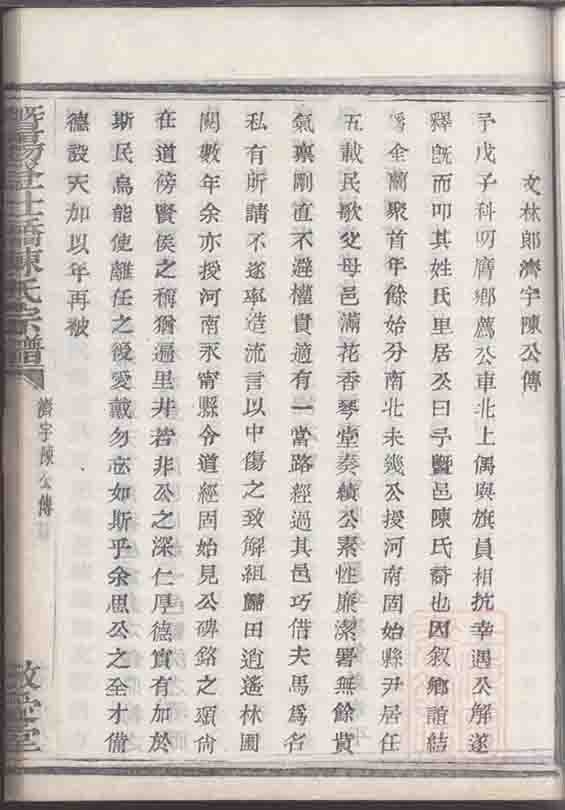 文林郎濟宇陳公傳
予戊子科叨膺鄉薦公車北上偶與旗員相抗幸遇公解遂
釋旣而叩其姓氏里居公曰予暨邑陳氏裔也因叙鄉誼結
爲金蘭聚首年餘始分南北未幾公授河南固始縣尹居任
五載民歌父母邑滿花香琴堂奏績公素性廉潔署無餘貲
氣禀剛直不避權貴適有一當路經過其邑巧借夫馬爲名
私有所請不遂寧造流言以中傷之致解組歸田逍遙林圃
閱數年余亦授河南永甯縣令道經固始見公碑銘之頌尙
在道傍賢侯之稱猶遍里井若非公之深仁厚德實有加於
斯民烏能使離任之後愛戴勿忘如斯乎余思公之全才備
德設天加以年再被
暨陽金仕橋陳氏宗譜
濟宇陳公傳
敦堂